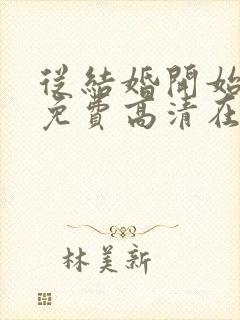 從結婚開始
免費高清在
林美新